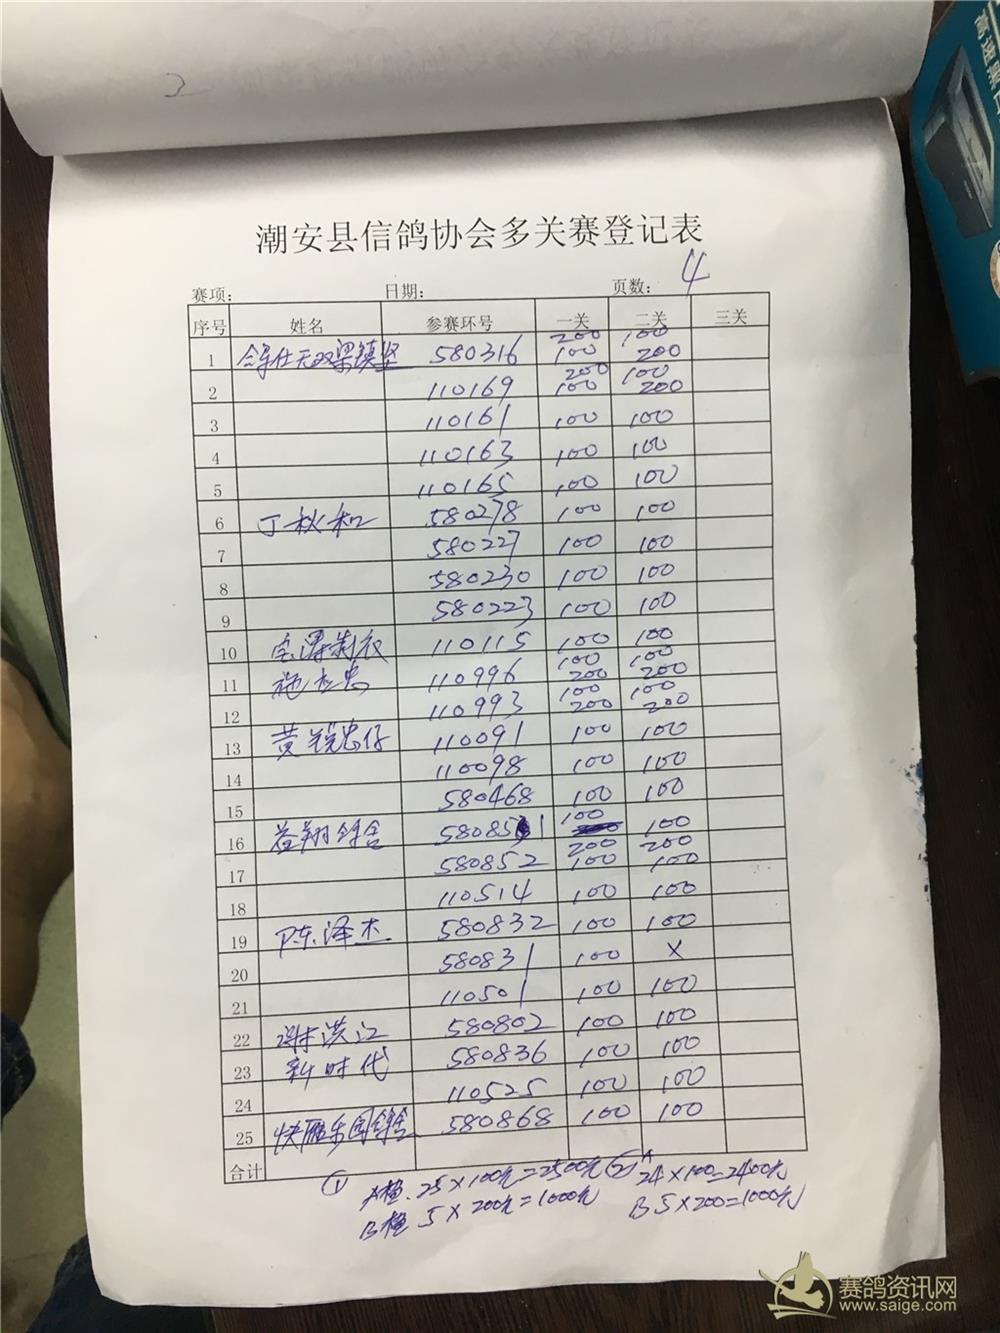 高速斯
2
潮安县信鸽协会多关赛登记表
赛项： 日期： 页数： 4
序号 姓名 参赛环号 一关 二关 三关
1 鸽仕无双梁镇坚 580316 200 100 100 200
2 110169 200 100 100 200
3 110161 100 100
4 110163 100 100
5 110165 100 100
6 丁秋和 580278 100 100
7 580227 100 100
8 580230 100 100
9 580223 100 100
10 宝泽制衣 110115 100 100
11 施杰忠 110996 100 200 100 200
12 110993 100 200 100 200
13 黄锐忠仔 110091 100 100
14 110098 100 100
15 580468 100 100
16 益翔鸽舍 580851 100 100
17 580852 200 100 200 100
18 110514 100 100
19 陈泽杰 580832 100 100
20 580831 100 X
21 110501 100 100
22 谢洪江 580802 100 100
23 新时代 580836 100 100
24 110525 100 100
25 快雁乐园鸽舍 580868 100 100
合计
① A组. 25×100元=2500元 ② A 24×100=2400元
B组 5×200元=1000元 B 5×200=1000元
赛鸽资讯网
www.saige.com